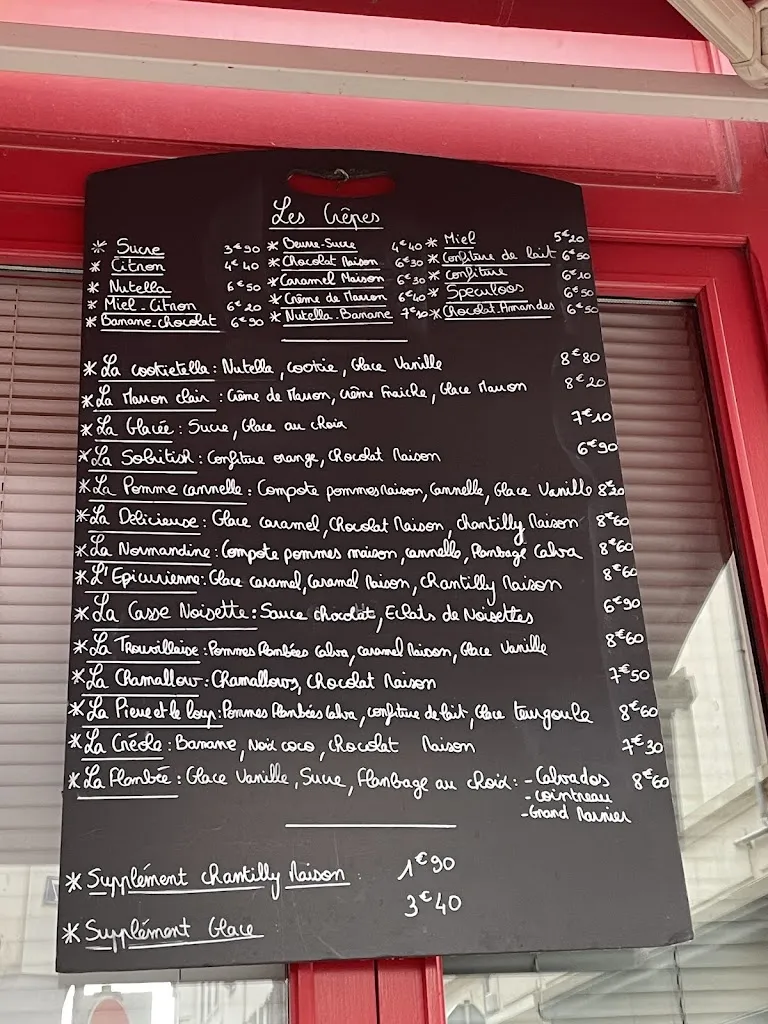 Les Crêpes
* Sucre 3€90 * Beurre-Sucre 4€40 * Miel 5€20
* Citron 4€40 * Chocolat Maison 6€30 * Confiture de lait 6€50
* Nutella 6€50 * Caramel Maison 6€30 * Confiture 6€10
* Miel-Citron 6€20 * Crème de Marron 6€40 * Speculoos 6€50
* Banane-chocolat 6€90 * Nutella-Banane 7€10 * Chocolat-Amandes 6€50
* La cookietella : Nutella, cookie, Glace Vanille 8€80
* La Marron clair : Crème de Marron, crème Fraîche, Glace Marron 8€20
* La Glacée : Sucre, Glace au choix 7€10
* La Solritish : Confiture orange, Chocolat Maison 6€90
* La Pomme cannelle : Compote pommes Maison, Cannelle, Glace Vanille 8€20
* La Délicieuse : Glace caramel, Chocolat Maison, chantilly Maison 8€60
* La Normandine : Compote pommes maison, cannelle, Flambage Calva 8€60
* L'Epicurienne : Glace caramel, caramel Maison, Chantilly Maison 8€60
* La Casse Noisette : Sauce chocolat, Eclats de Noisettes 6€90
* La Trouvillaise : Pommes Flambées Calva, caramel Maison, Glace Vanille 8€60
* La Chamallow : Chamallows, Chocolat Maison 7€50
* La Pierre et le loup : Pommes Flambées Calva, confiture de lait, Glace teurgoule 8€60
* La Créole : Banane, Noix coco, Chocolat Maison 7€30
* La Flambée : Glace Vanille, Sucre, Flambage au choix : - Calvados 8€60
- cointreau
- Grand Marnier
* Supplément chantilly Maison : 1€90
* Supplément Glace 3€40